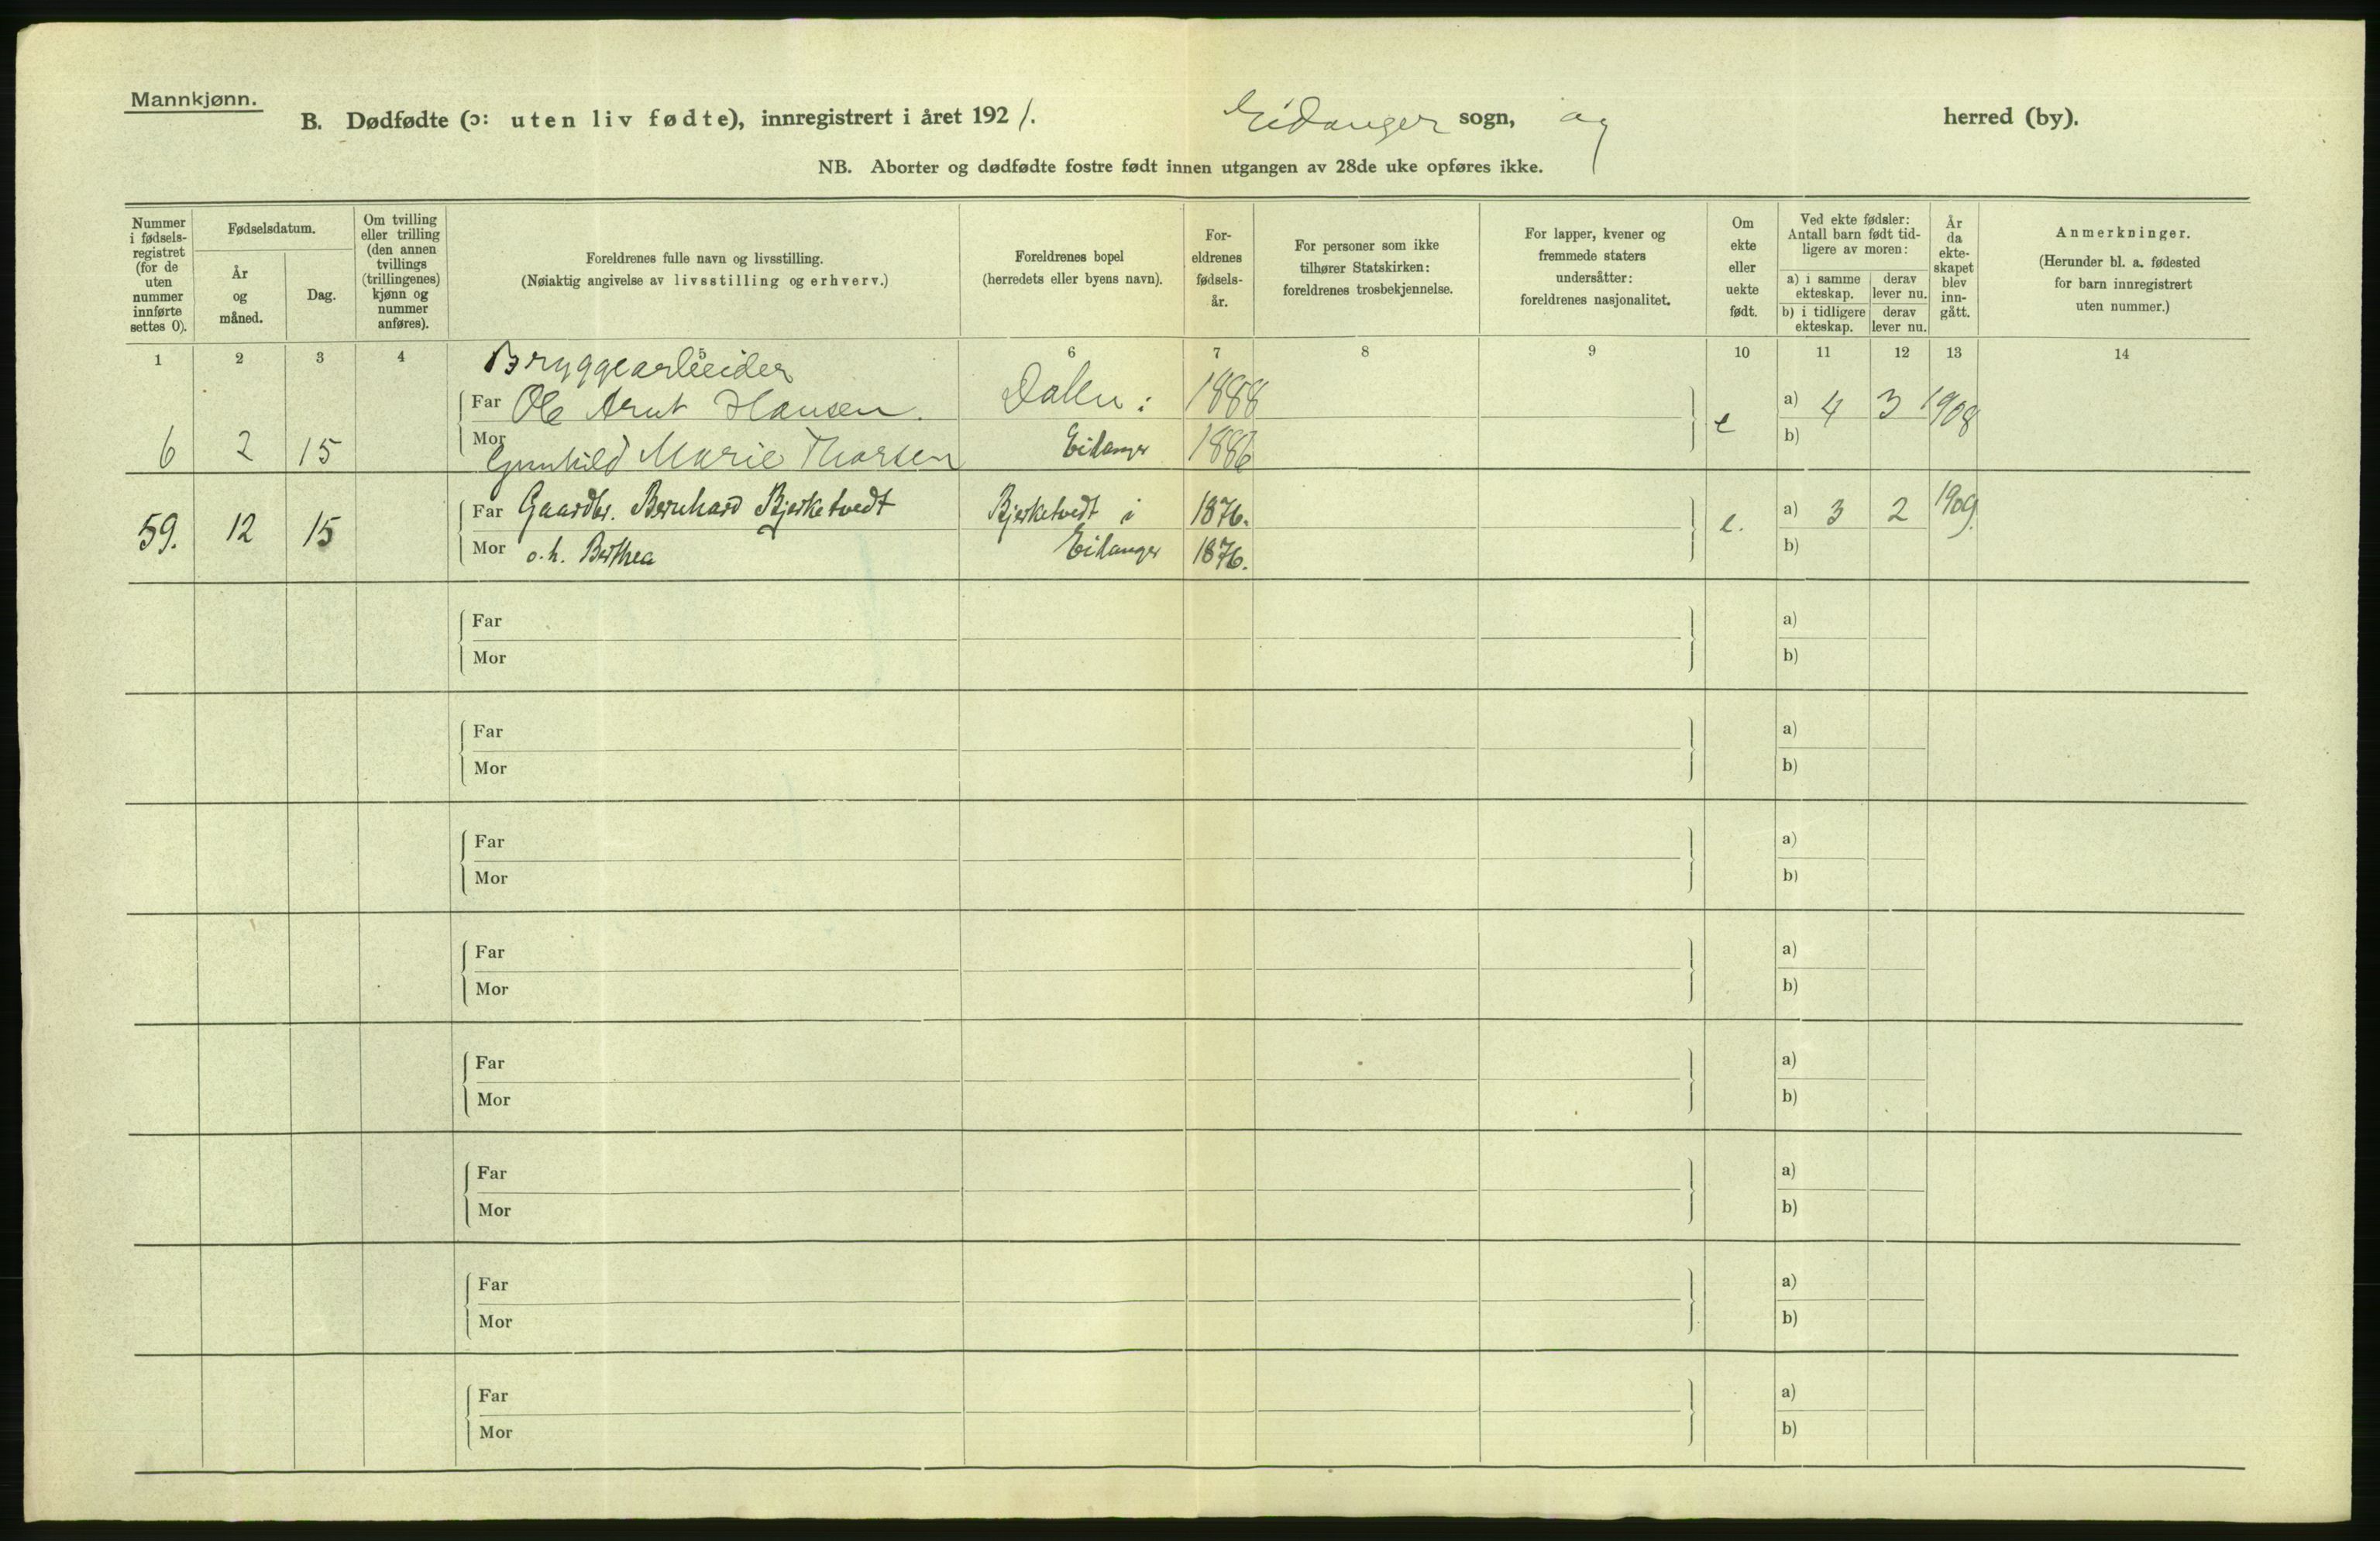 Mannkjønn.
B. Dødfødte (ɔ: uten liv fødte), innregistrert i året 1921. Eidanger sogn, og herred (by).
NB. Aborter og dødfødte fostre født innen utgangen av 28de uke opføres ikke.
Nummer i fødsels- registret (for de uten nummer innførte settes 0).
Fødselsdatum.
År og måned.
Dag.
Om tvilling eller trilling (den annen tvillings (trillingenes) kjønn og nummer anføres).
Foreldrenes fulle navn og livsstilling.
(Nøiaktig angivelse av livsstilling og erhverv.)
Foreldrenes bopel
(herredets eller byens navn).
For- eldrenes fødsels- år.
For personer som ikke tilhører Statskirken: foreldrenes trosbekjennelse.
For lapper, kvener og fremmede staters undersåtter: foreldrenes nasjonalitet.
Om ekte eller uekte født.
Ved ekte fødsler: Antall barn født tid- ligere av moren:
a) i samme ekteskap. derav lever nu.
b) i tidligere ekteskap. derav lever nu.
År da ekte- skapet blev inn- gått.
Anmerkninger.
(Herunder bl. a. fødested for barn innregistrert uten nummer.)
1 2 3 4 5 6 7 8 9 10 11 12 13 14
Bryggearbeider
Far Ole Arnt Hansen. Dalen i 1888 a) 4 3 1908
6 2 15 Mor Gunhild Marie Thorsen Eidanger 1886 e b)
Far Gaardbr. Bernhard Bjerketvedt Bjerketvedt i 1876. a) 3 2 1909
59. 12 15 Mor o.h. Berthea Eidanger 1876. e. b)
Far a)
Mor b)
Far a)
Mor b)
Far a)
Mor b)
Far a)
Mor b)
Far a)
Mor b)
Far a)
Mor b)
Far a)
Mor b)
Far a)
Mor b)